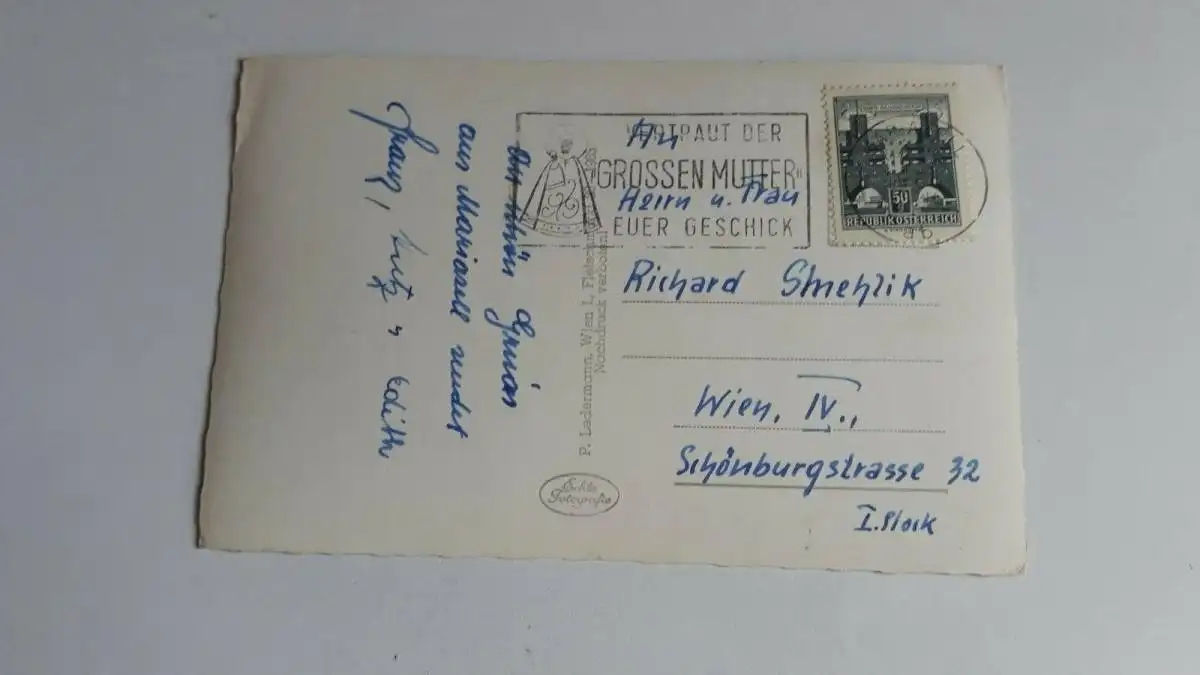 VERTRAUT DER
"GROSSEN MUTTER"
EUER GESCHICK
50
REPUBLIK ÖSTERREICH
An
Herrn u. Frau
Richard Smehlik
Wien, IV.,
Schönburgstrasse 32
I. Stock
schön Grüße
aus Mariazell sendet
Franz, Fritz u Edith
P. Ledermann, Wien I, Fleischm
Nachdruck verboten!
Echte
Fotografie